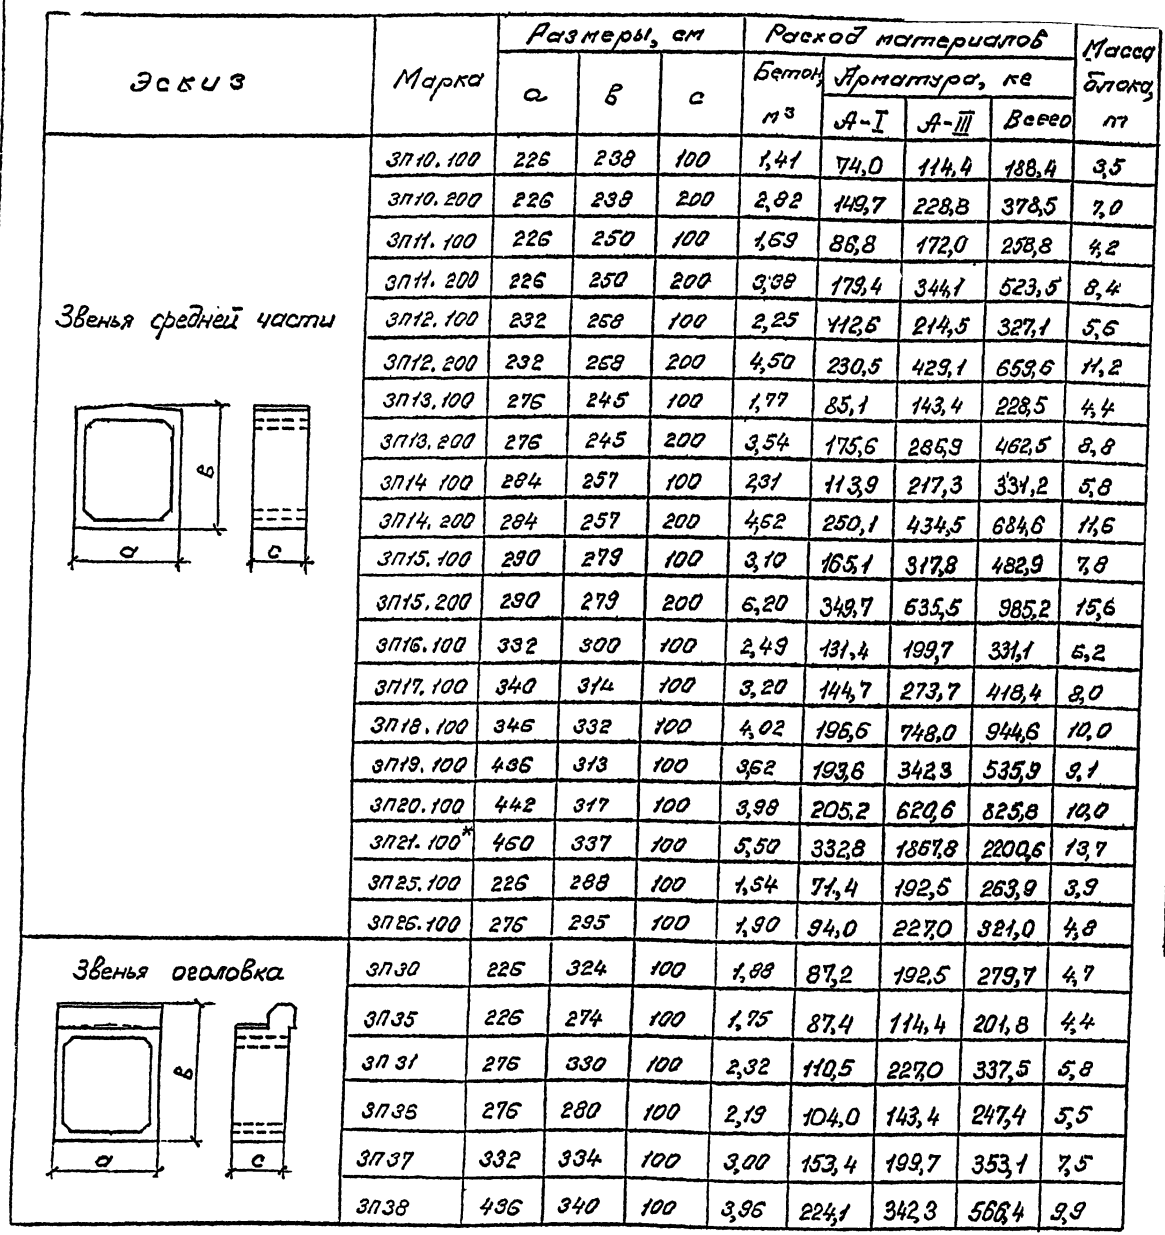 Эскиз Марка Размеры, см Расход материалов Масса блока, т
а в с Бетон, м³ Арматура, кг
А-I А-III Всего
Звенья средней части
ЗП10.100 226 238 100 1,41 74,0 114,4 188,4 3,5
ЗП10.200 226 238 200 2,82 149,7 228,8 378,5 7,0
ЗП11.100 226 250 100 1,69 86,8 172,0 258,8 4,2
ЗП11.200 226 250 200 3,38 179,4 344,1 523,5 8,4
ЗП12.100 232 268 100 2,25 112,6 214,5 327,1 5,6
ЗП12.200 232 268 200 4,50 230,5 429,1 659,6 11,2
ЗП13.100 276 245 100 1,77 85,1 143,4 228,5 4,4
ЗП13.200 276 245 200 3,54 175,6 286,9 462,5 8,8
ЗП14 100 284 257 100 2,31 113,9 217,3 331,2 5,8
ЗП14.200 284 257 200 4,62 250,1 434,5 684,6 11,6
ЗП15.100 290 279 100 3,10 165,1 317,8 482,9 7,8
ЗП15.200 290 279 200 6,20 349,7 635,5 985,2 15,6
ЗП16.100 332 300 100 2,49 131,4 199,7 331,1 6,2
ЗП17.100 340 314 100 3,20 144,7 273,7 418,4 8,0
ЗП18.100 346 332 100 4,02 196,6 748,0 944,6 10,0
ЗП19.100 436 313 100 3,62 193,6 342,3 535,9 9,1
ЗП20.100 442 317 100 3,98 205,2 620,6 825,8 10,0
ЗП21.100* 460 337 100 5,50 332,8 1867,8 2200,6 13,7
ЗП25.100 226 288 100 1,54 71,4 192,5 263,9 3,9
ЗП26.100 276 295 100 1,90 94,0 227,0 321,0 4,8
в
а с
Звенья оголовка
ЗП30 226 324 100 1,88 87,2 192,5 279,7 4,7
ЗП35 226 274 100 1,75 87,4 114,4 201,8 4,4
ЗП31 276 330 100 2,32 110,5 227,0 337,5 5,8
ЗП36 276 280 100 2,19 104,0 143,4 247,4 5,5
ЗП37 332 334 100 3,00 153,4 199,7 353,1 7,5
ЗП38 436 340 100 3,96 224,1 342,3 566,4 9,9
в
а с